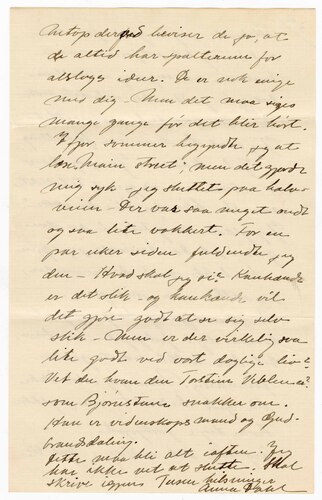 Netop derved beviser du jo, at
de altid har spalterum for
alslags ideer. De er nok enige
med dig. Men det maa siges
mange gange før det blir hørt.
Ifjor sommer begyndte jeg at
læse "Main Street", men det gjorde
mig syk - jeg sluttet paa halv-
veien - Der var saa meget ondt
og saa lite vakkert. For en
par uker siden fuldendte jeg
den - Hvad skal jeg si? Kanhænde
er det slik - og kanhænde vil
det gjøre godt at se sig selv
slik - Men er der virkelig saa
lite godt ved vort daglige liv?
Vet du hvem den Torstein Veblen er?
som Bjørnstene snakker om.
Han er videnskapsmand og Gud-
brandsdøling.
Dette maa bli alt iaften. Jeg
har ikke vet at slutte. Skal
skrive igjen. Tusen hilsninger
Anna Dahl